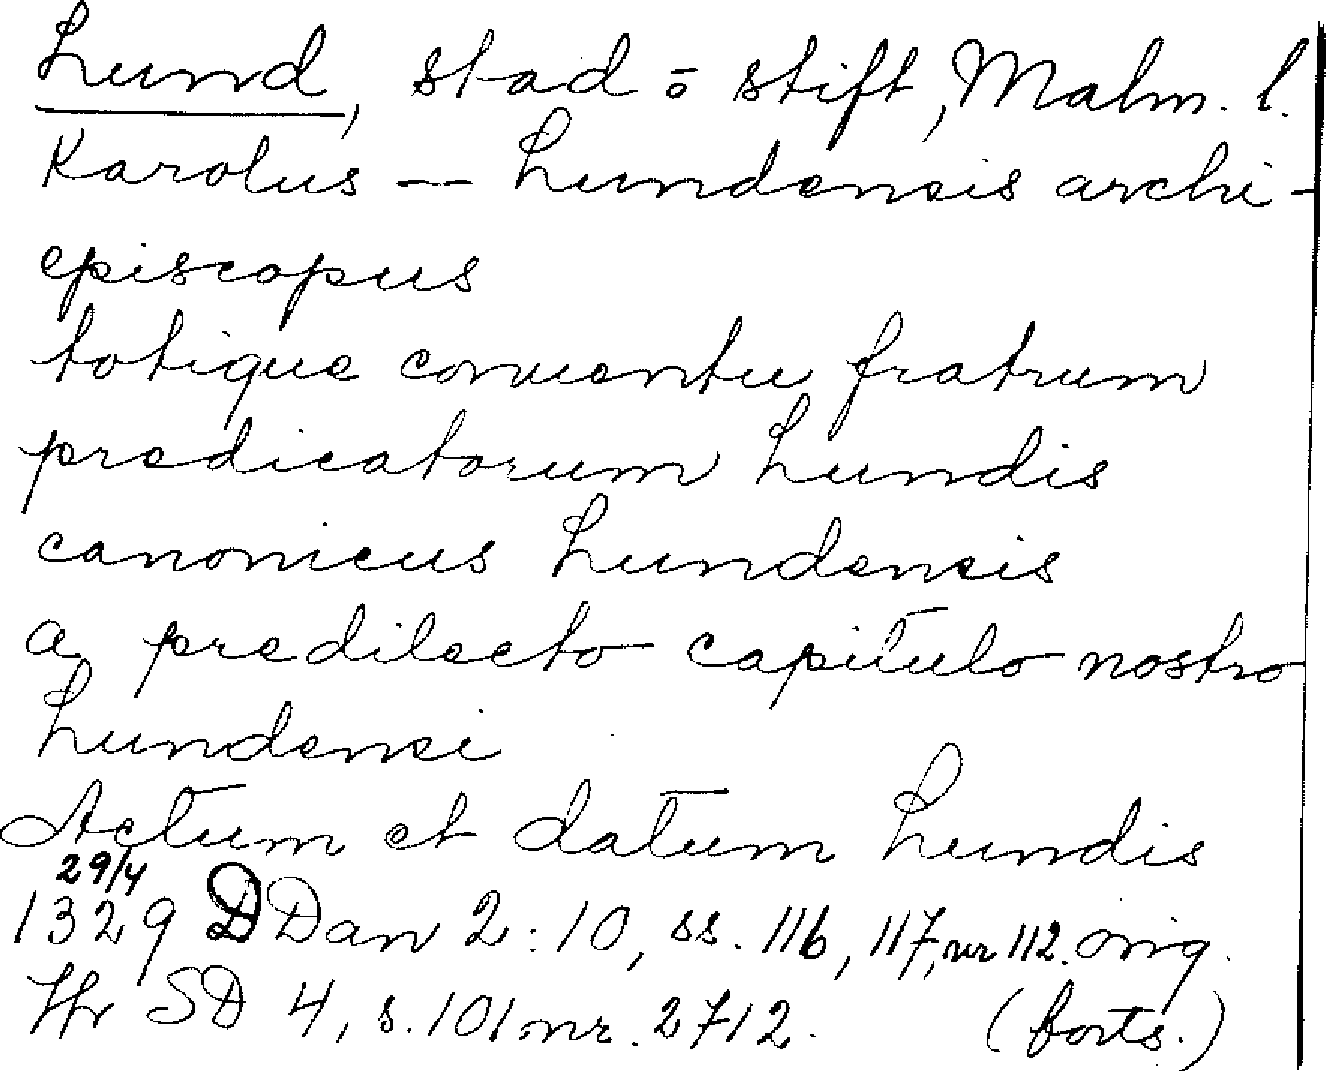 Lund, stad o stift, Malm. l.
Karolus -- Lundensis archi-
episcopus
totique conuentu fratrum
predicatorum Lundis
canonicus Lundensis
a predilecto capitulo nostro
Lundensi
Actum et datum Lundis
29/4
1329 DDan 2:10, ss. 116, 117, nr 112. orig.
Tr SD 4, s. 101 nr. 2712. (forts.)